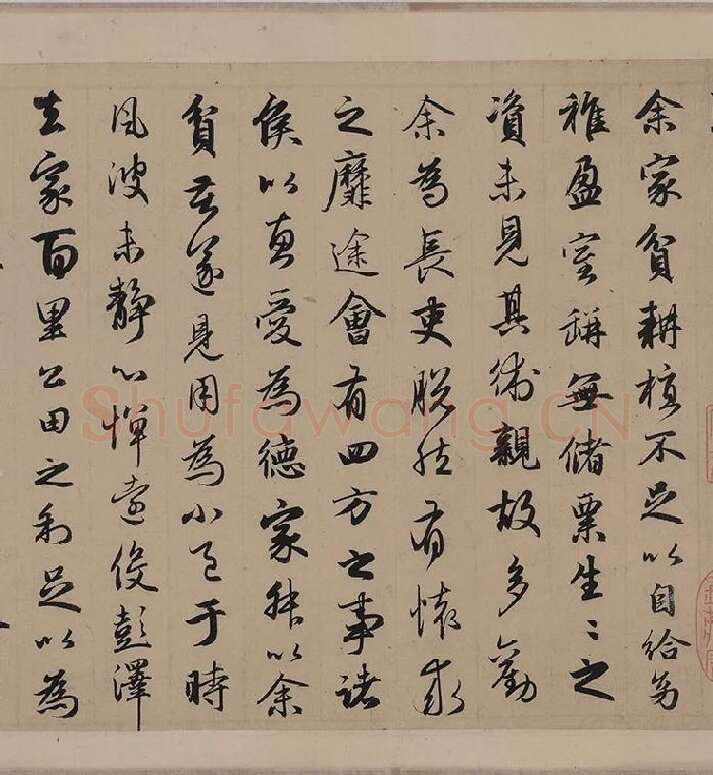 余家貧耕植不足以自給幼
稚盈室缾無儲粟生〻之
資未見其術親故多勸
余為長吏脫然有懷求
之靡途會有四方之事諸
侯以惠愛為德家叔以余
貧苦遂見用為小邑于時
風波未靜心憚遠役彭澤
去家百里公田之利足以為
Shufawang.CN